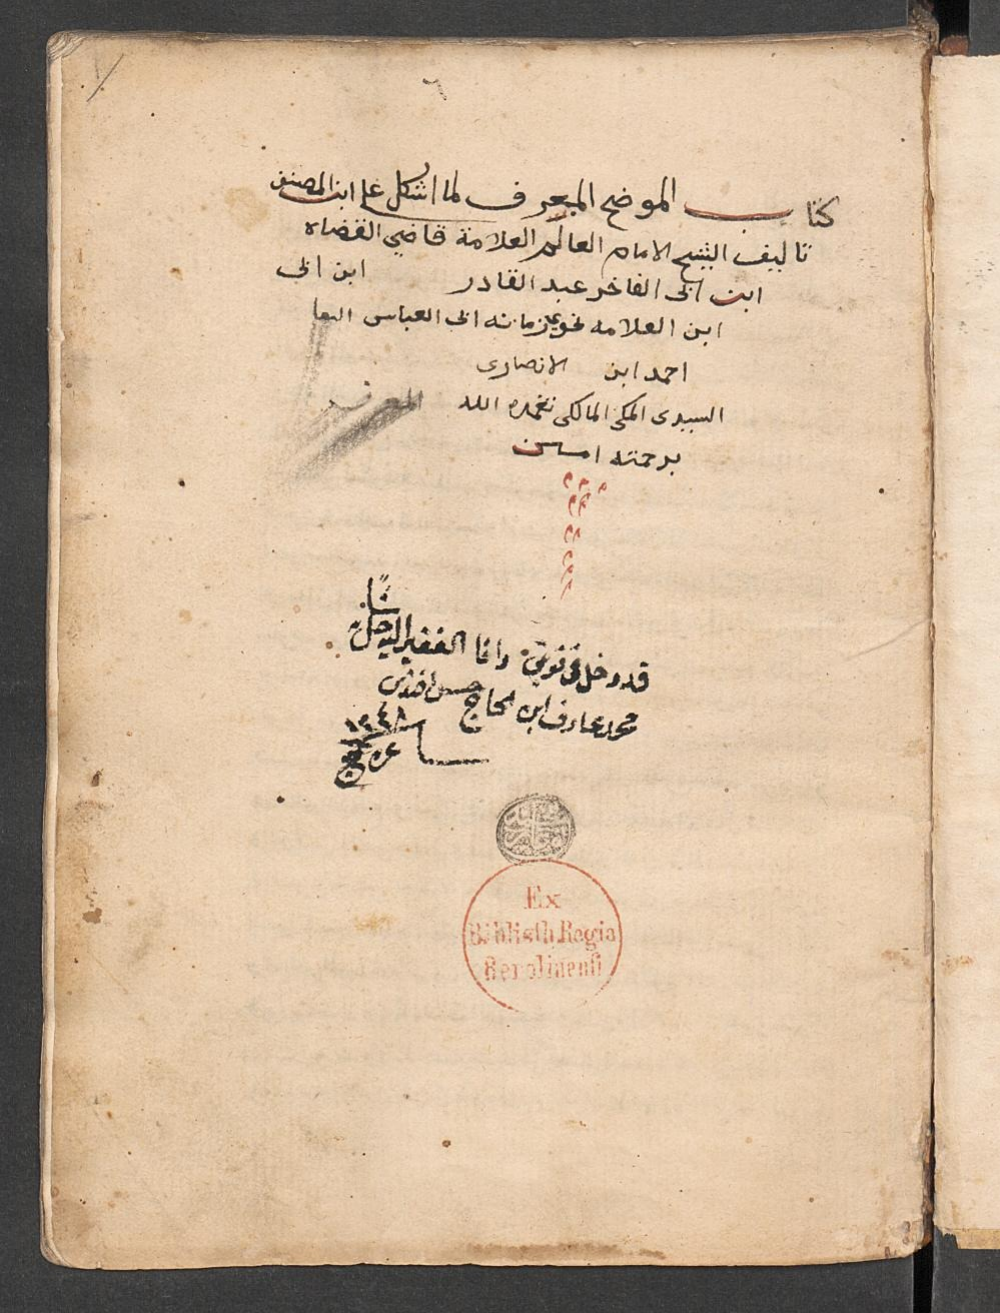 كتاب الموضح المعرف لما اشكل على ابن المصنف
تاليف الشيخ الامام العالم العلامة قاضي القضاه
ابن ابى الفاخر عبد القادر ابن ابى
ابن العلامه نحوى زمانه ابى العباس
احمد ابن الانصارى
المكى المالكى تغمده الله
برحمته امين
قد دخل فى نوبتى وانا الفقير
محمد عارف ابن الحاج حسن افندى
سنة
١٢٤٨
Ex
Biblioth. Regia
Berolinensi